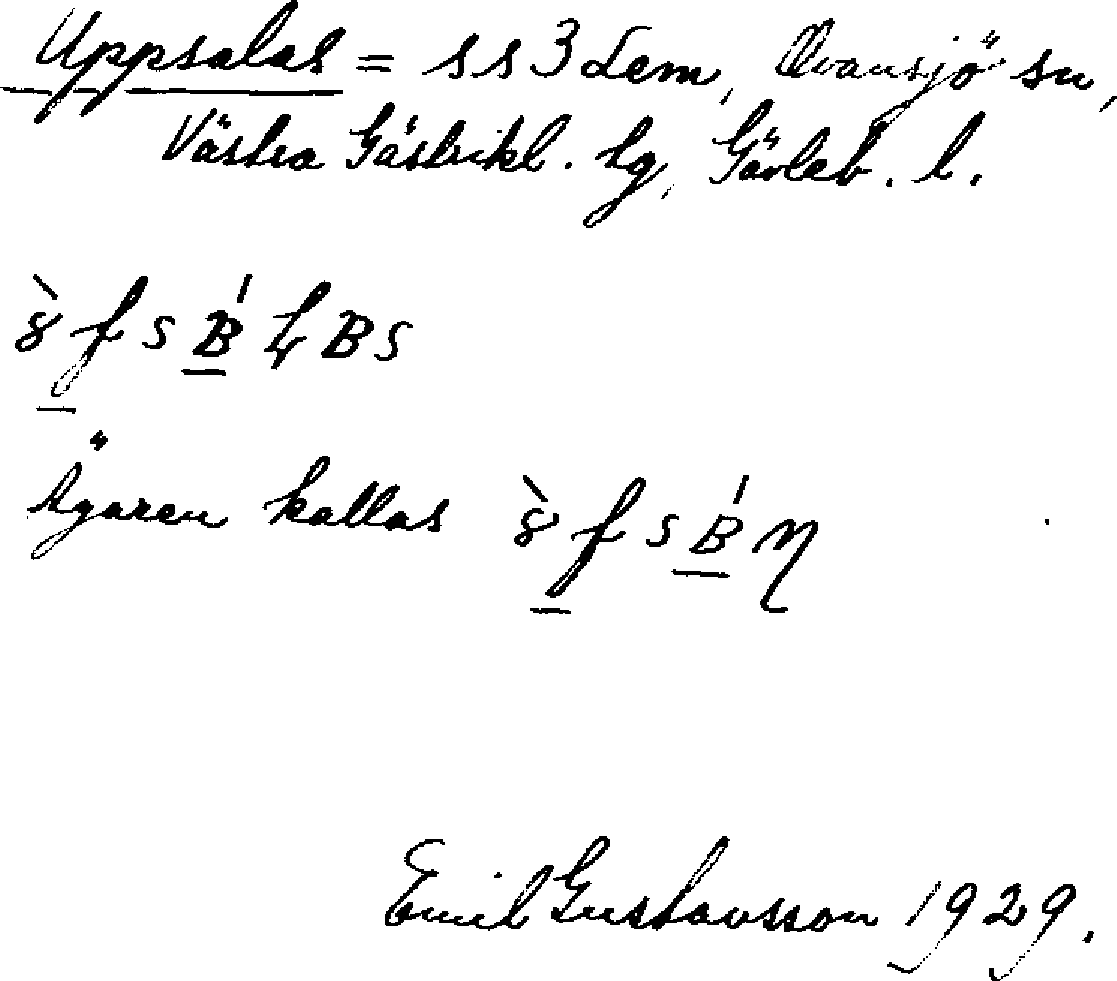 Uppsalas = ss 3 Lem, Ovansjö sn,
Västra Gästrikl. tg, Gävleb. l.
Ägaren kallas
Emil Gustavsson 1929.